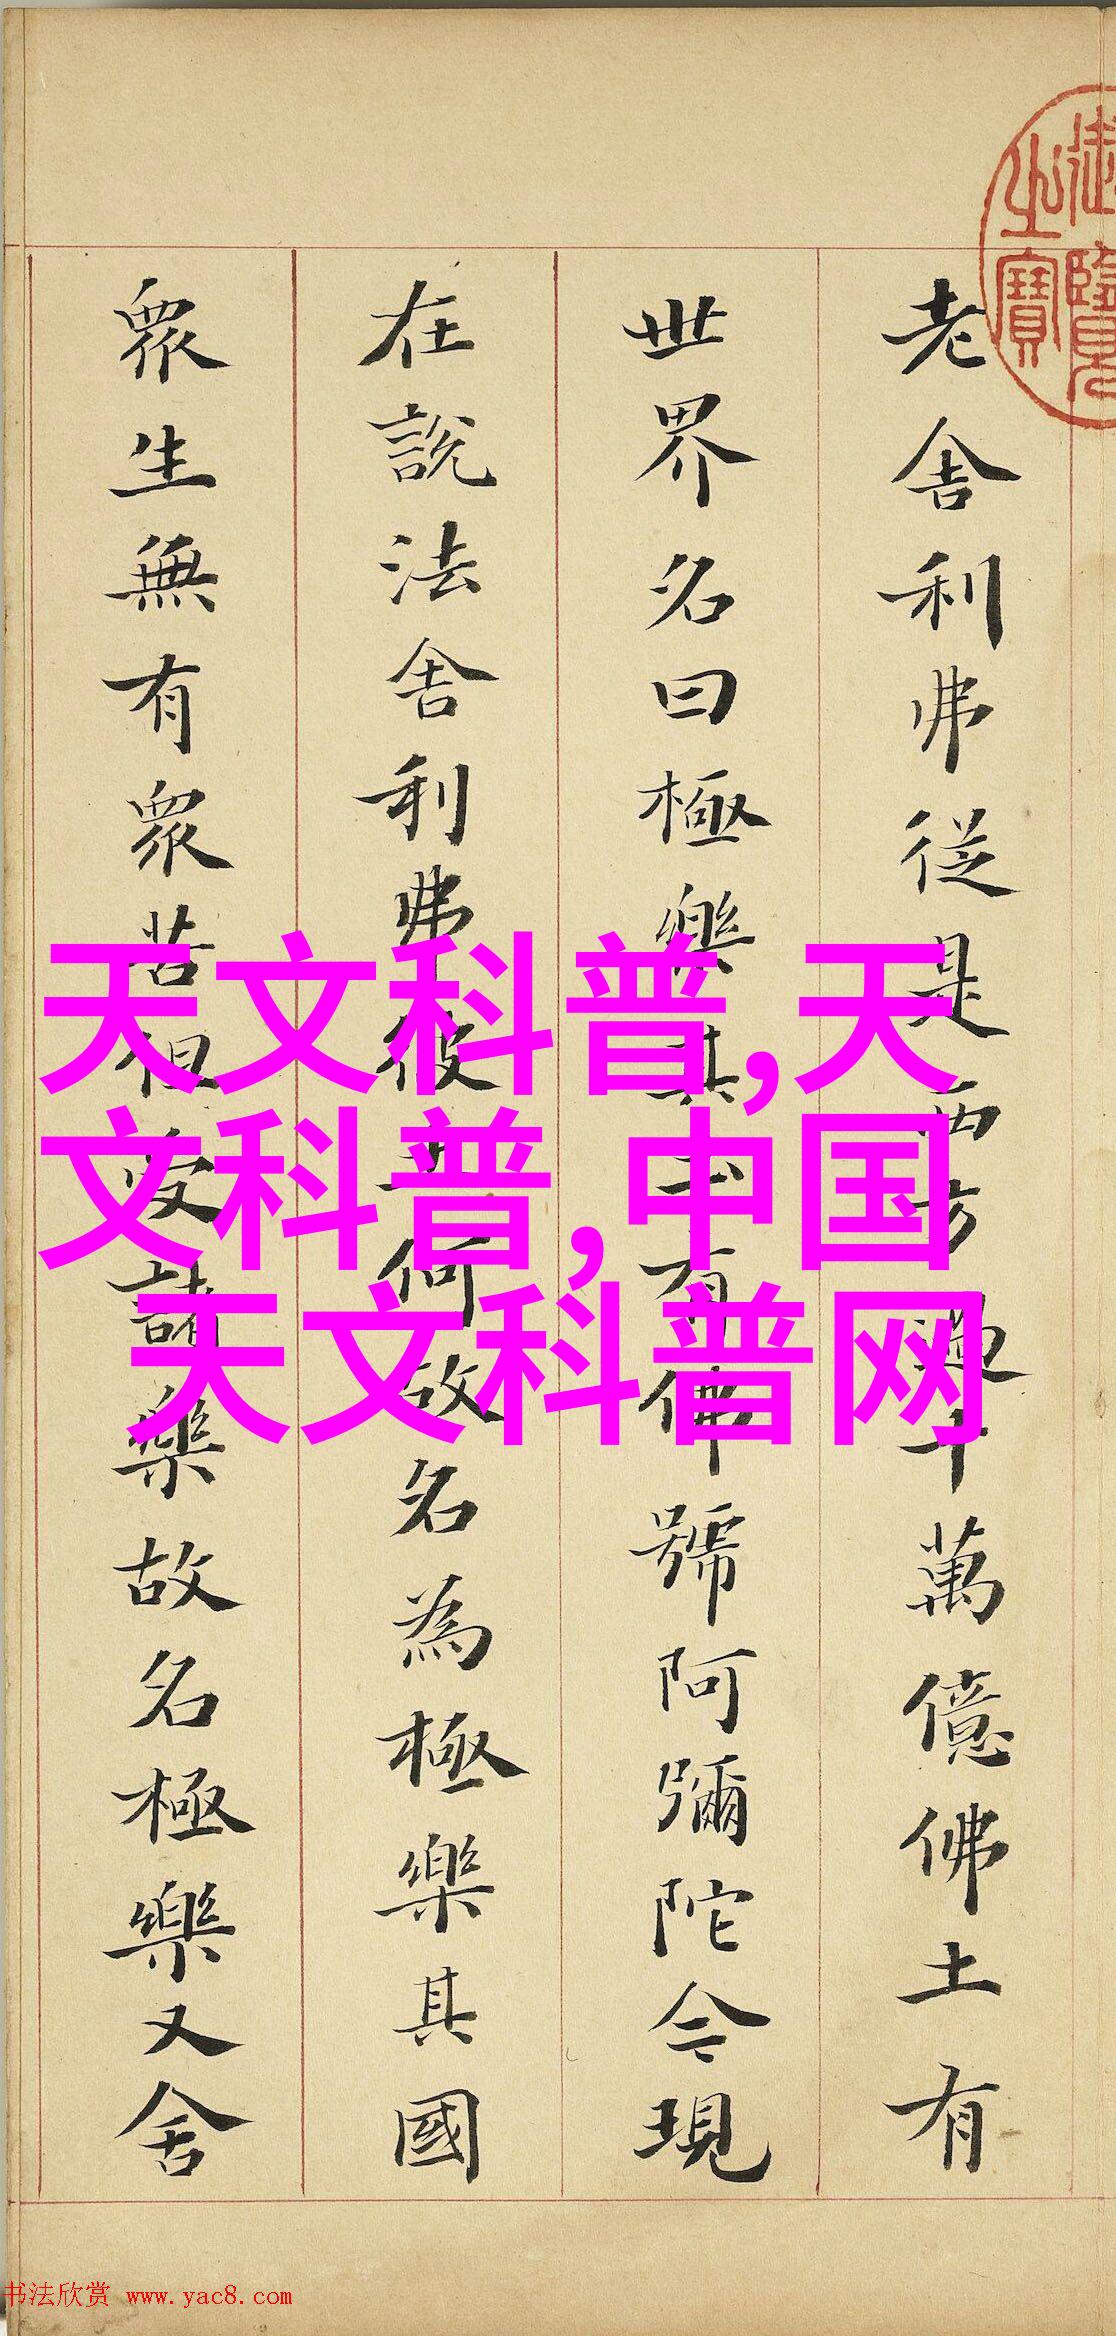 御覽之寶
老舍利弗從是西方過十萬億佛土有
世界名曰極樂其土有佛號阿彌陀今現
在說法舍利弗彼土何故名為極樂其國
眾生無有眾苦但受諸樂故名極樂又舍
天文科普,天
文科普,中国
天文科普网
书法欣赏 www.yac8.com